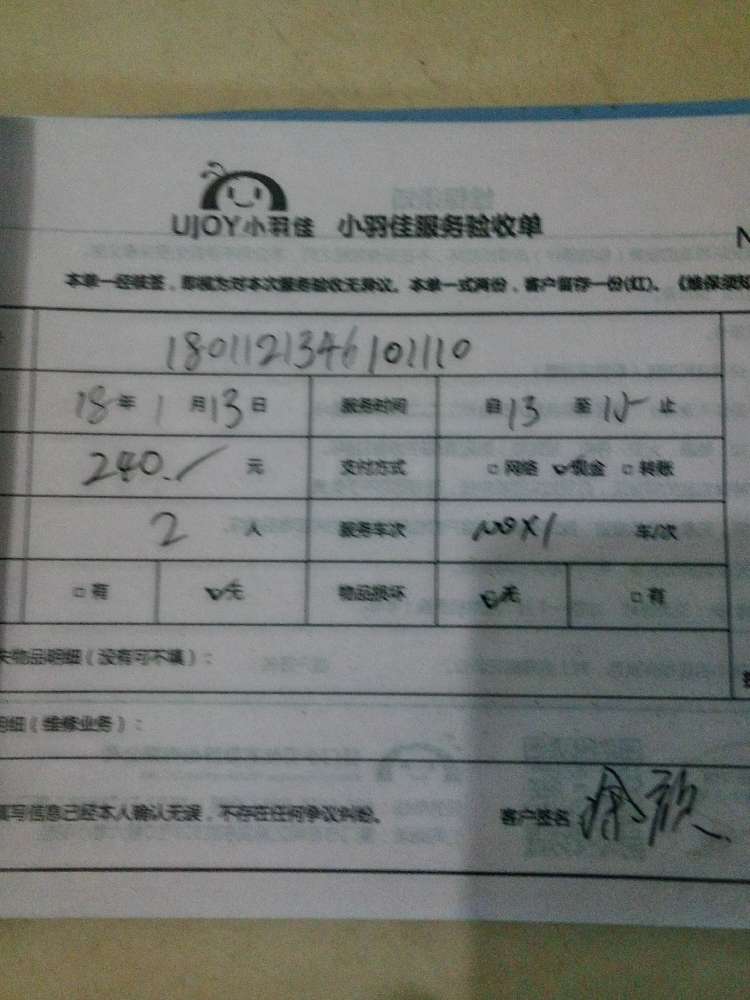 UJOY小羽佳 小羽佳服务验收单
本单一经核签，即视为对本次服务验收无异议。本单一式两份，客户留存一份(红)。《维保须知
1801121346101110
18年1月13日 服务时间 自13至15止
240.元 支付方式 □网络 ☑现金 □转账
2人 服务车次 X1 车/次
□有 ☑无 物品损坏 ☑无 □有
失物品明细（没有可不填）：
明细（维修业务）：
填写信息已经本人确认无误，不存在任何争议纠纷。 客户签名 徐欣